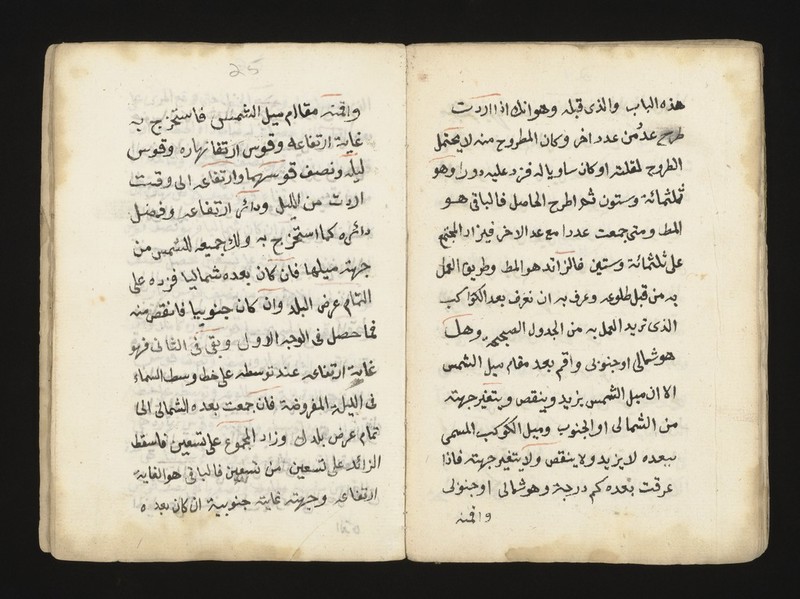 هذه الباب والذى قبله وهو انك اذا اردت
طرح عدد من عدد اخر وكان المطروح منه لا يحتمل
الطروح لقلته او كان مساويا له فزد عليه دورا وهو
ثلثمائة وستون ثم اطرح الحاصل فالباقى هو
المط ومتى جمعت عددا مع عدد الاخر فيزاد المجتمع
على ثلثمائة وستين فالزائد هو المط وطريق العمل
به من قبل طلوعه وغربه ان نعرف بعد الكواكب
الذى تريد العمل به من الجدول الصحيح وهل
هو شمالى او جنوبى واقم بعد مقام ميل الشمس
الا ان ميل الشمس يزيد وينقص ويتغير جهته
من الشمالى او الجنوب وميل الكوكب المسمى
ببعده لا يزيد ولا ينقص ولا يتغير جهته فاذا
عرفت بعده كم درجة وهو شمالى او جنوبى
واقمته
25
واقمته مقام ميل الشمس فاستخرج به
غاية ارتفاعه وقوس ارتفا نهاره وقوس
ليله ونصف قوسهما وارتفاعه الى وقت
اردت من الليل ودائر ارتفاعه وفضل
دائره كما استخرج به ولك جميعه للشمس من
جهة ميلها فان كان بعده شماليا فزده على
التمام عرض البلد وان كان جنوبيا فانقص منه
فما حصل فى الوجه الاول وبقى فى الثانى فهو
غاية ارتفاعه عند توسطه على خط وسط السماء
فى الليلة المفروضة فان جمعت بعده الشمالى الى
تمام عرض بلدك وزاد المجموع على تسعين فاسقط
الزائد على تسعين من تسعين فالباقى هو الغاية
ارتفاعه وجهته غايته جنوبية ان كان بعده